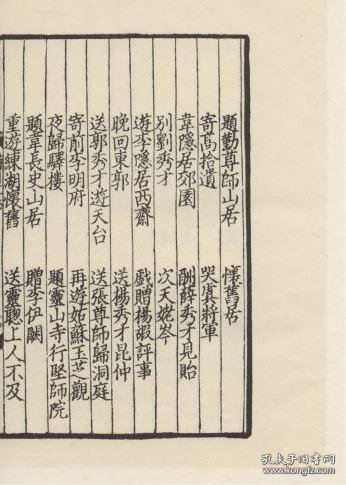 題勤尊師山居　懷舊居
寄高拾遺　哭虞將軍
韋隱居郊園　酬薛秀才見貽
別劉秀才　次天姥岑
遊李隱居西齋　戲贈楊嘏評事
晚回東郭　送楊秀才昆仲
送郭秀才遊天台　送張尊師歸洞庭
寄前李明府　再遊姑蘇玉芝觀
夜歸驛樓　題靈山寺行堅師院
題韋長史山居　贈李伊闕
重遊練湖懷舊　送靈聰上人不及
孔夫子旧书网